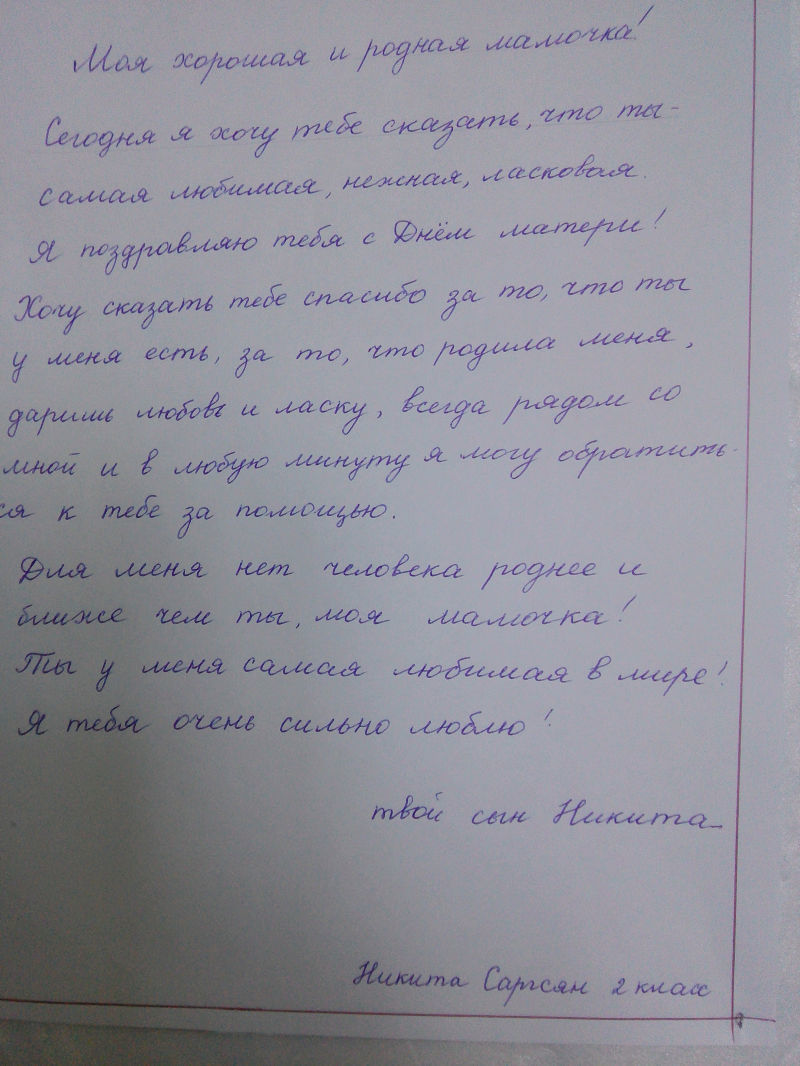 Моя хорошая и родная мамочка!
Сегодня я хочу тебе сказать, что ты-
самая любимая, нежная, ласковая.
Я поздравляю тебя с Днём матери!
Хочу сказать тебе спасибо за то, что ты
у меня есть, за то, что родила меня,
даришь любовь и ласку, всегда рядом со
мной и в любую минуту я могу обратить-
ся к тебе за помощью.
Для меня нет человека роднее и
ближе чем ты, моя мамочка!
Ты у меня самая любимая в мире!
Я тебя очень сильно люблю!
твой сын Никита
Никита Саргсян 2 класс